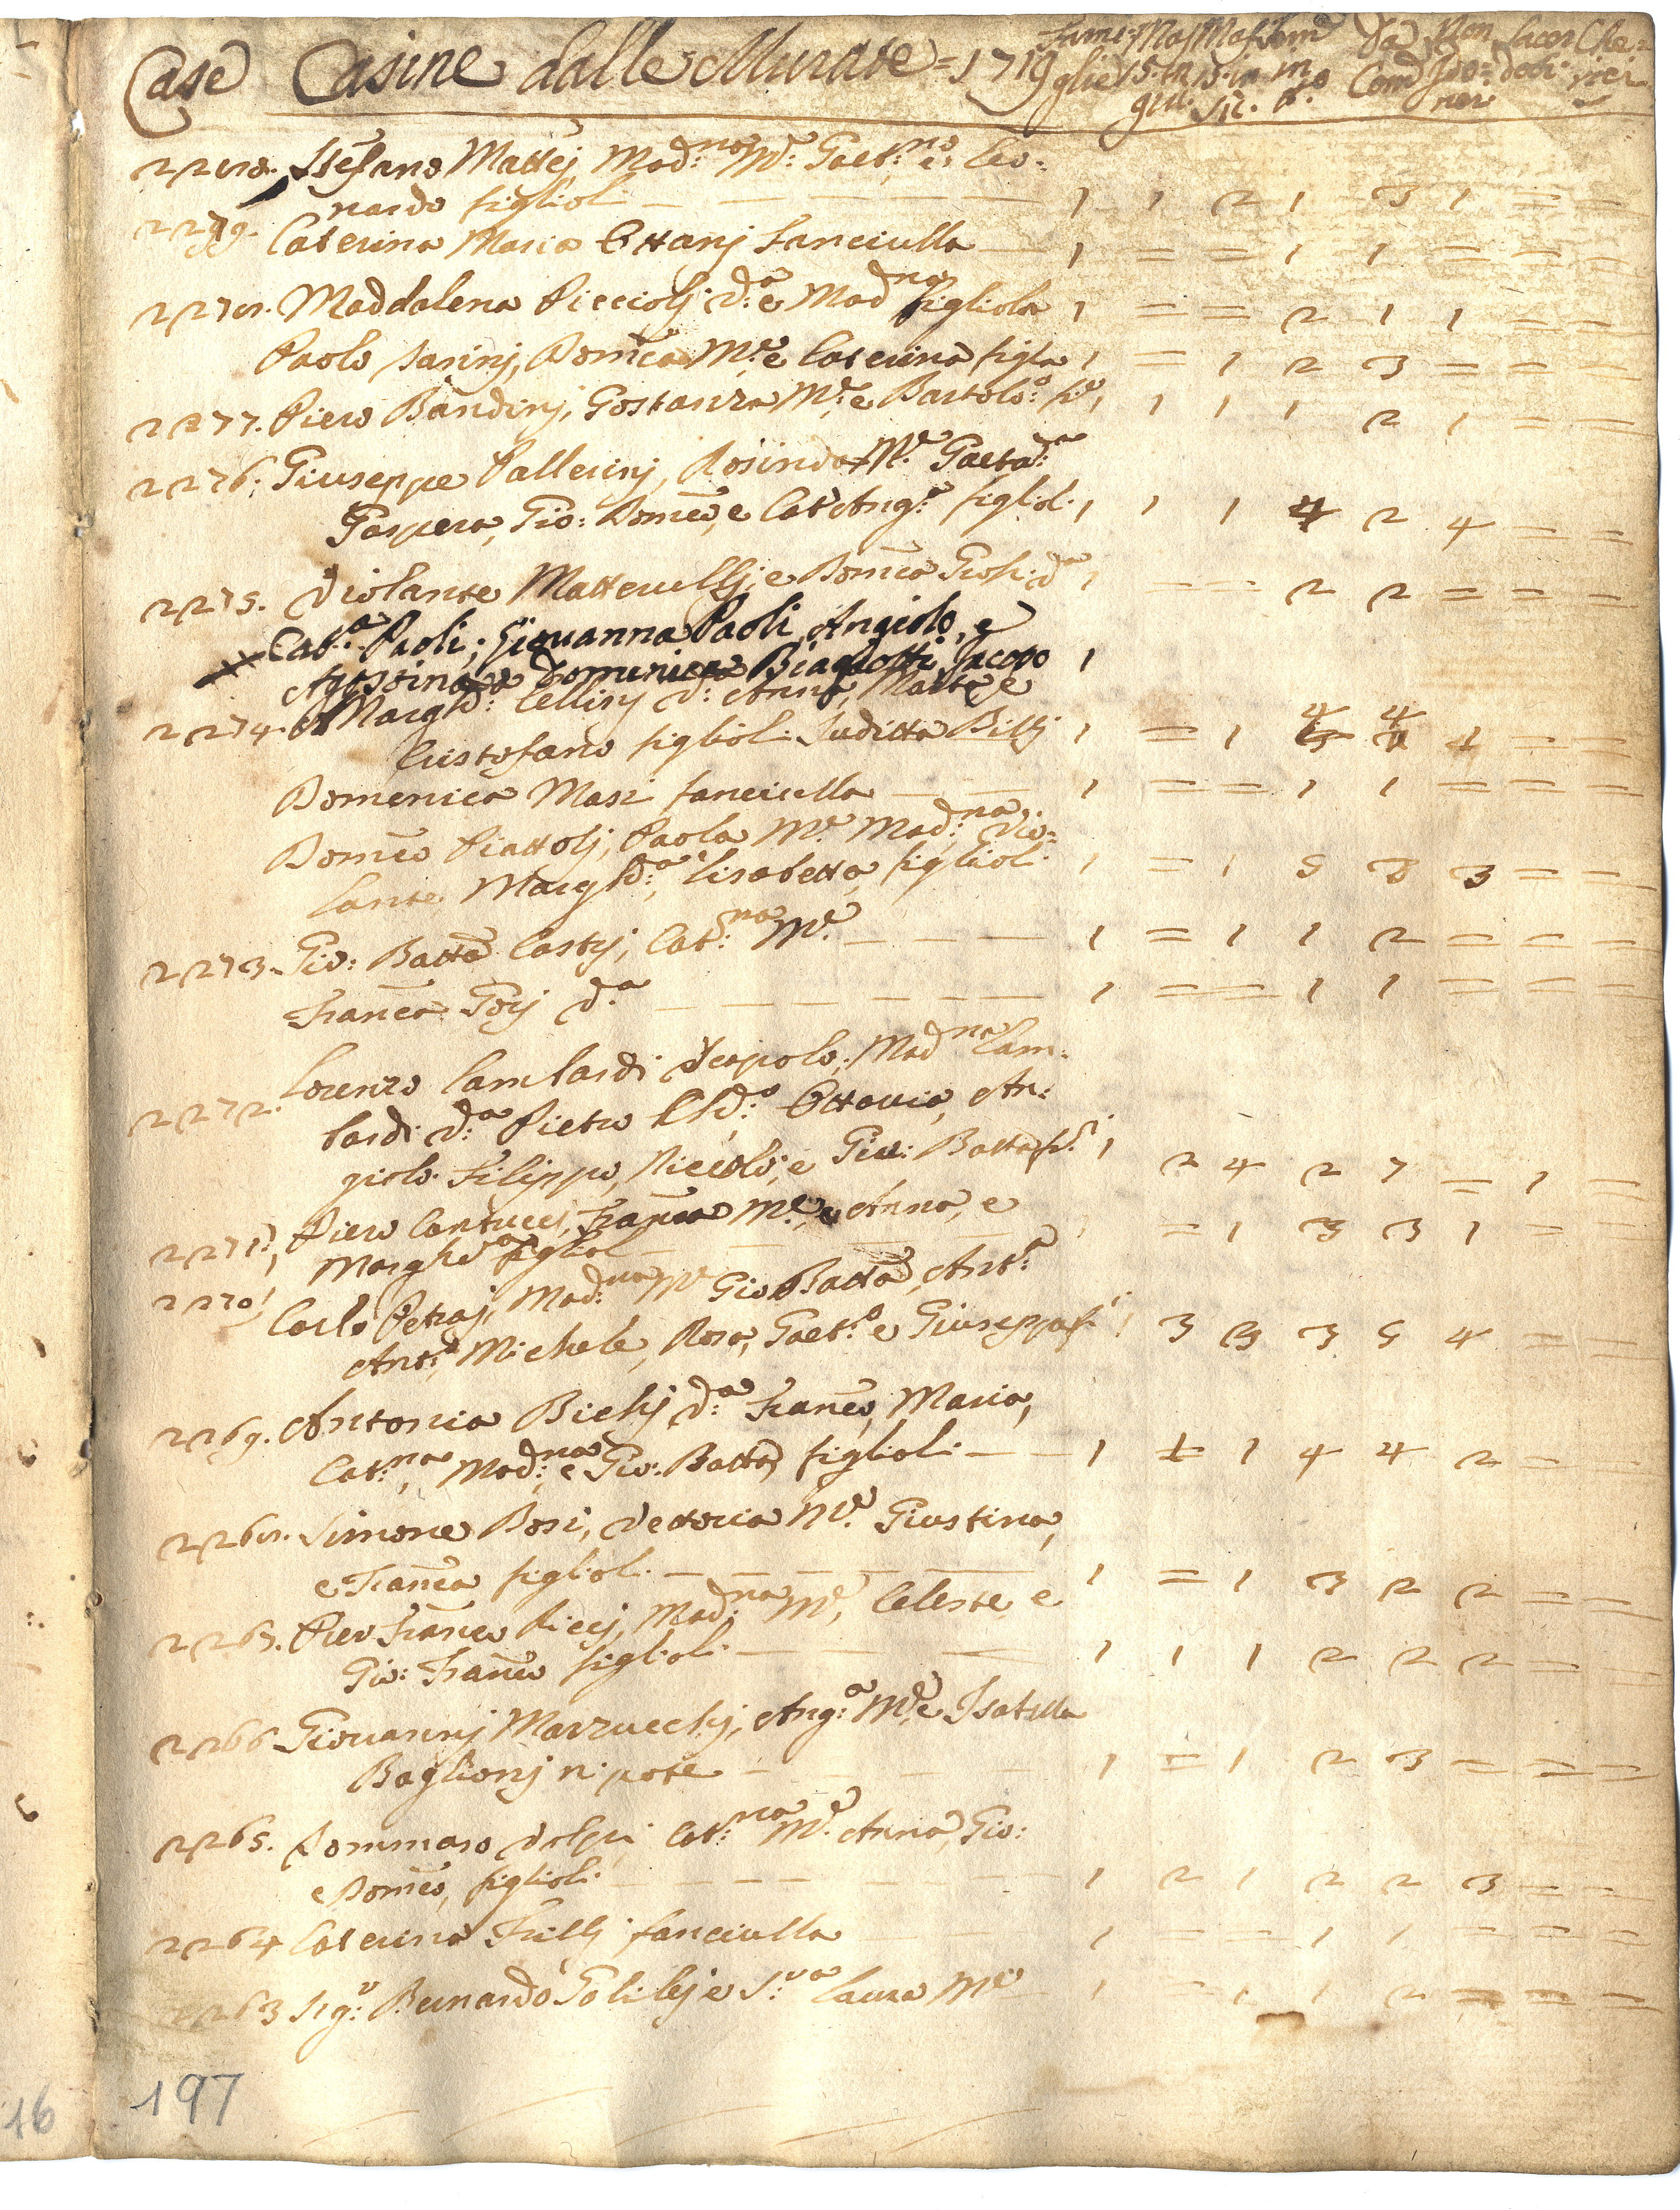 Case Casine dalle Murate = 1719 Fami= Mas Mas Fem Da Non Sacer Che=
glie 15. in 15. in in Com Ido= doti rici
giu. su. tto ner
2280. Stefano Mattej, Mad:na Me: Gaet:no e: Leo=
nardo figlioli — 1 1 2 1 3 1 = =
2279. Caterina Maria Ottanj fanciulla — 1 = = 1 1 = = =
2278. Maddalena Picciolj d:a e Madna figliola 1 = = 2 1 1 = =
Paolo Sarinj, Domca Me: e Caterina figla 1 = 1 2 3 = = =
2277. Piero Bandinj, Gostanza Me: e Bartolo:o fo: 1 1 1 1 2 1 = =
2276. Giuseppe Pallerinj, Rosinda Me: Gaetad:na
Gaspera, Gio: Domco, e Cat Ang:a figlioli 1 1 1 4 2 4 = =
2275. Violante Matteucci e Domca d:a 1 = = 2 2 = = =
Cat:a Paoli; Giovanna Paoli Angiolo, e
Agostina Domenica Biagiotti Jacopo 1
2274. Margh:a Cellinj d:a Anna, Marta e
Cristofano figlioli Juditta Billj 1 = 1 4 4 1 = =
Domenica Masi fanciulla — 1 = = 1 1 = = =
Domco Piattolj, Paola Me: Mad:na Vio=
lante Margh:a, Lisabetta, figlioli 1 = 1 5 3 3 = =
2273. Gio: Batta Castrj, Cat:na Me: — 1 = 1 1 2 = = =
Franca Gorj d:a — 1 = = 1 1 = = =
2272. Lorenzo Lambardi Scapolo, Mad na Lam=
bardi d:a Pietro Ott:o Ottavio, An=
giolo Filippo, Niccolò, e Gio: Batta f:i 1 2 4 2 7 = 1 =
2271. Piero Cantucci, Franca Me: e Anna, e
Marghta figlioli — = 1 3 3 1 = =
2270. Carlo Petraj, Mad:na Me Gio Batta, Ant:a
Ant:o Michele, Rosa, Gaet:o e Giuseppa fi 1 3 3 3 5 4 = =
2269. Antonia Bichj d:a Franco, Maria,
Cat:na, Mad:na e Gio: Batta figlioli — 1 1 1 4 4 2 = =
2268. Simone Bosi, Vettoria Me: Giustina,
e Franca figlioli — 1 = 1 3 2 2 = =
2267. Pier Franco Riccj, Mad:na Me, Celeste, e
Gio: Franco figlioli — 1 1 1 2 2 2 = =
2266 Giovannj Marzucchj, Ang:a Me: e Isabella
Baglionj nipote — 1 = 1 2 3 = = =
2265. Tommaso Volpi Cat:na Me: Anna, Gio:
e Domco, figlioli — 1 2 1 2 2 3 = =
2264 Caterina Frillj fanciulla — 1 = = 1 1 = = =
2263 Sig:r Bernardo Galilej e S:ra Laura Me 1 = 1 1 2 = = =
197
16